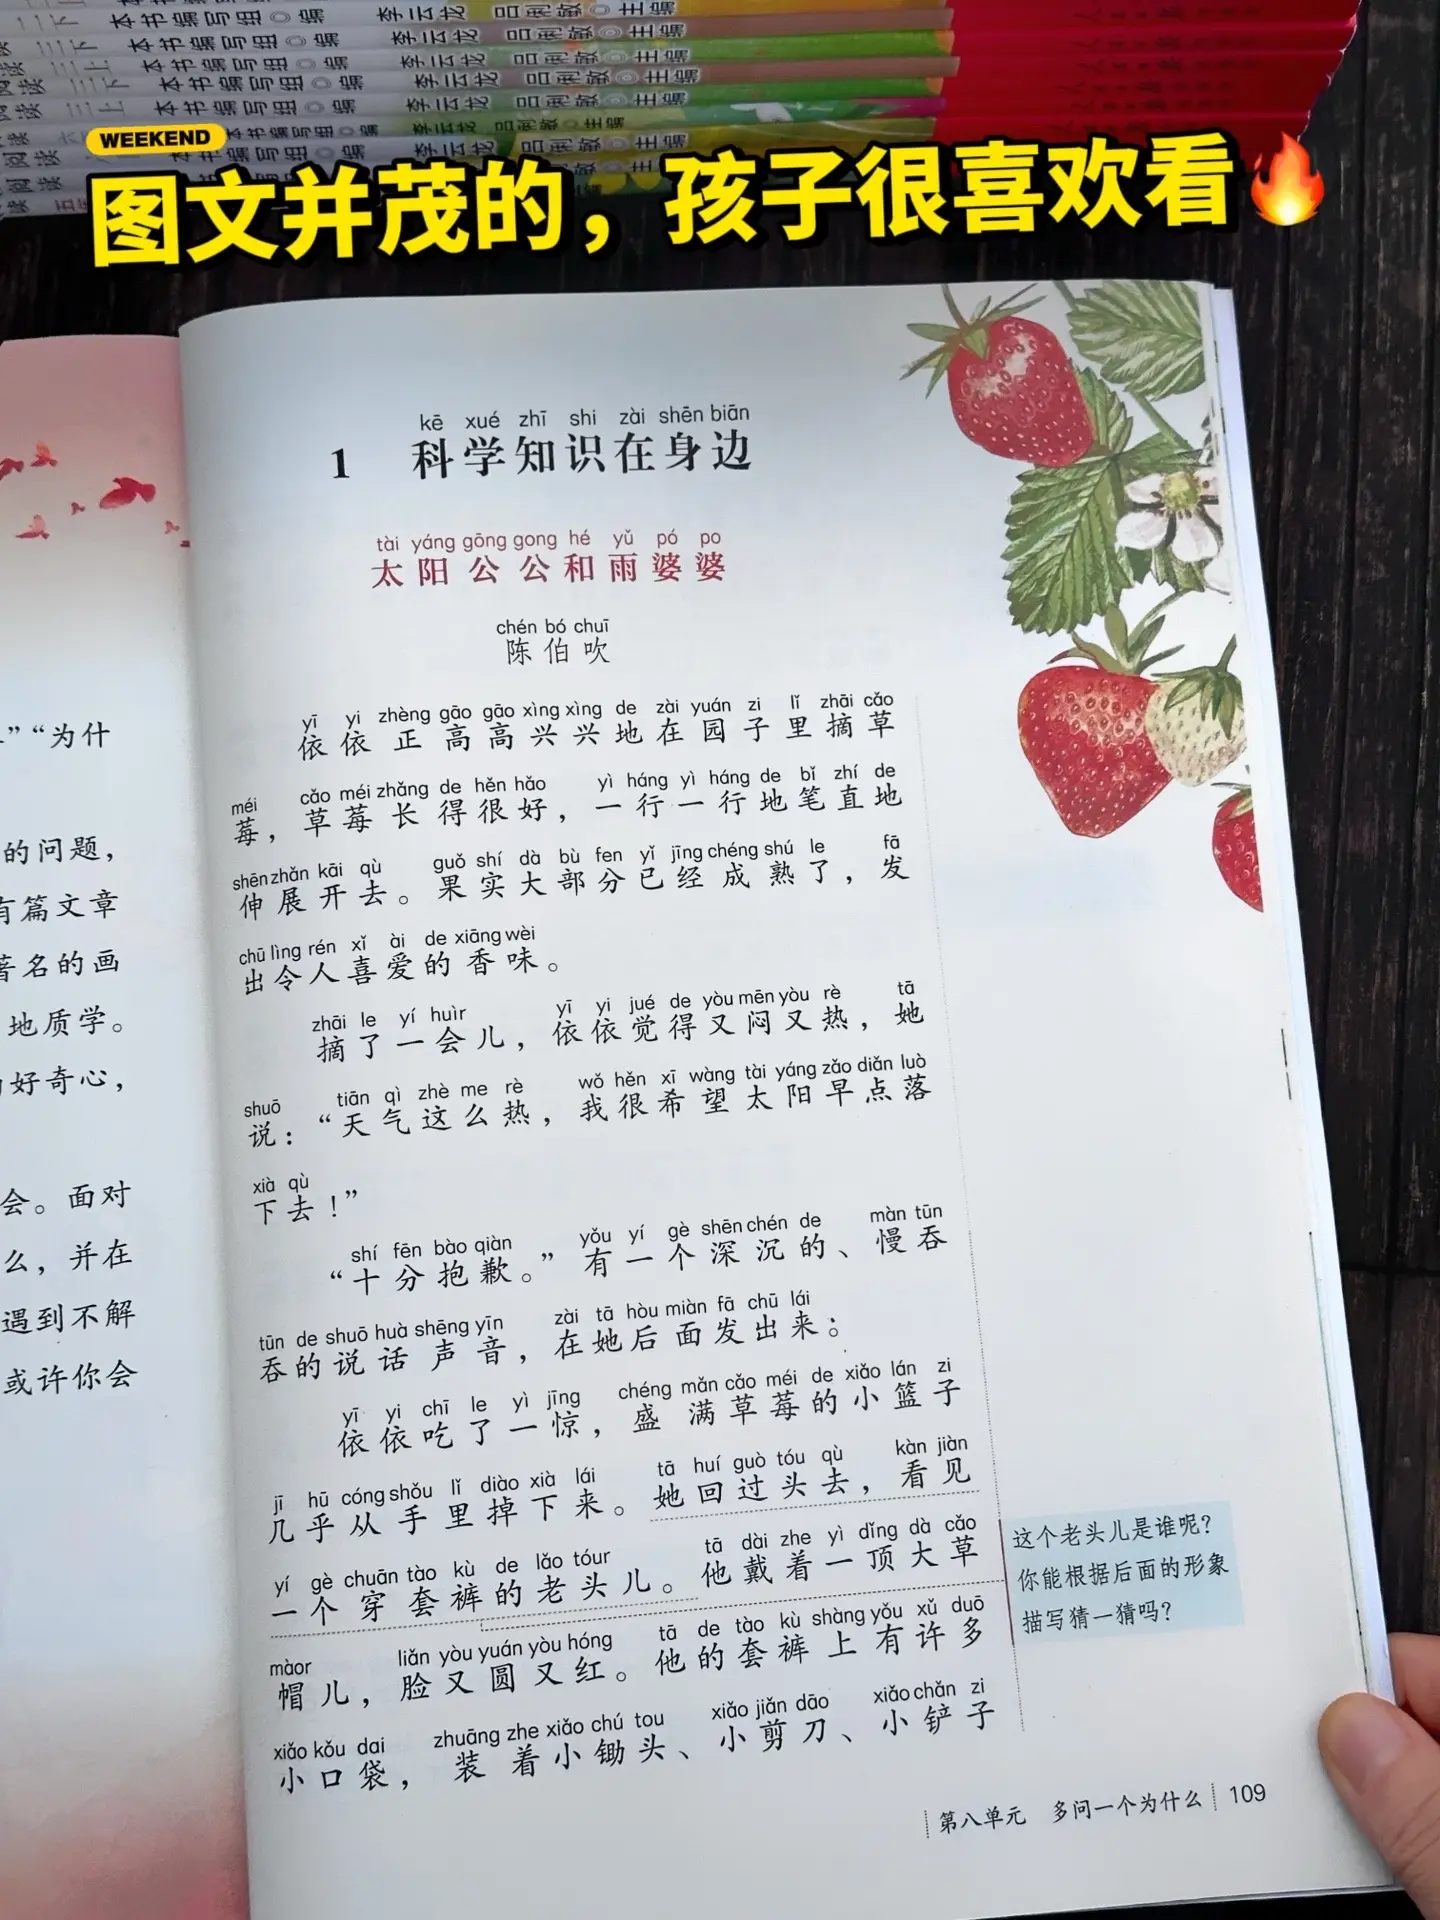 本书编写组◎编 李云龙 吕俐敏◎主编
WEEKEND
图文并茂的，孩子很喜欢看🔥
kē xué zhī shi zài shēn biān
1 科学知识在身边
tài yáng gōng gong hé yǔ pó po
太阳公公和雨婆婆
chén bó chuī
陈伯吹
yī yi zhèng gāo gāo xìng xìng de zài yuán zi lǐ zhāi cǎo
依依正高高兴兴地在园子里摘草
méi cǎo méi zhǎng de hěn hǎo yì háng yì háng de bǐ zhí de
莓，草莓长得很好，一行一行地笔直地
shēn zhǎn kāi qù guǒ shí dà bù fen yǐ jīng chéng shú le fā
伸展开去。果实大部分已经成熟了，发
chū lìng rén xǐ ài de xiāng wèi
出令人喜爱的香味。
zhāi le yí huìr yī yi jué de yòu mēn yòu rè tā
摘了一会儿，依依觉得又闷又热，她
shuō tiān qì zhè me rè wǒ hěn xī wàng tài yáng zǎo diǎn luò
说：“天气这么热，我很希望太阳早点落
xià qù
下去！”
shí fēn bào qiàn yǒu yí gè shēn chén de màn tūn
“十分抱歉。”有一个深沉的、慢吞
tūn de shuō huà shēng yīn zài tā hòu miàn fā chū lái
吞的说话声音，在她后面发出来：
yī yi chī le yì jīng chéng mǎn cǎo méi de xiǎo lán zi
依依吃了一惊，盛满草莓的小篮子
jī hū cóng shǒu lǐ diào xià lái tā huí guò tóu qù kàn jiàn
几乎从手里掉下来。她回过头去，看见
yí gè chuān tào kù de lǎo tóur tā dài zhe yì dǐng dà cǎo
一个穿套裤的老头儿。他戴着一顶大草
màor liǎn yòu yuán yòu hóng tā de tào kù shàng yǒu xǔ duō
帽儿，脸又圆又红。他的套裤上有许多
xiǎo kǒu dai zhuāng zhe xiǎo chú tou xiǎo jiǎn dāo xiǎo chǎn zi
小口袋，装着小锄头、小剪刀、小铲子
这个老头儿是谁呢？
你能根据后面的形象
描写猜一猜吗？
第八单元 多问一个为什么 109
”“为什
的问题，
有篇文章
著名的画
地质学。
好奇心，
会。面对
么，并在
遇到不解
或许你会